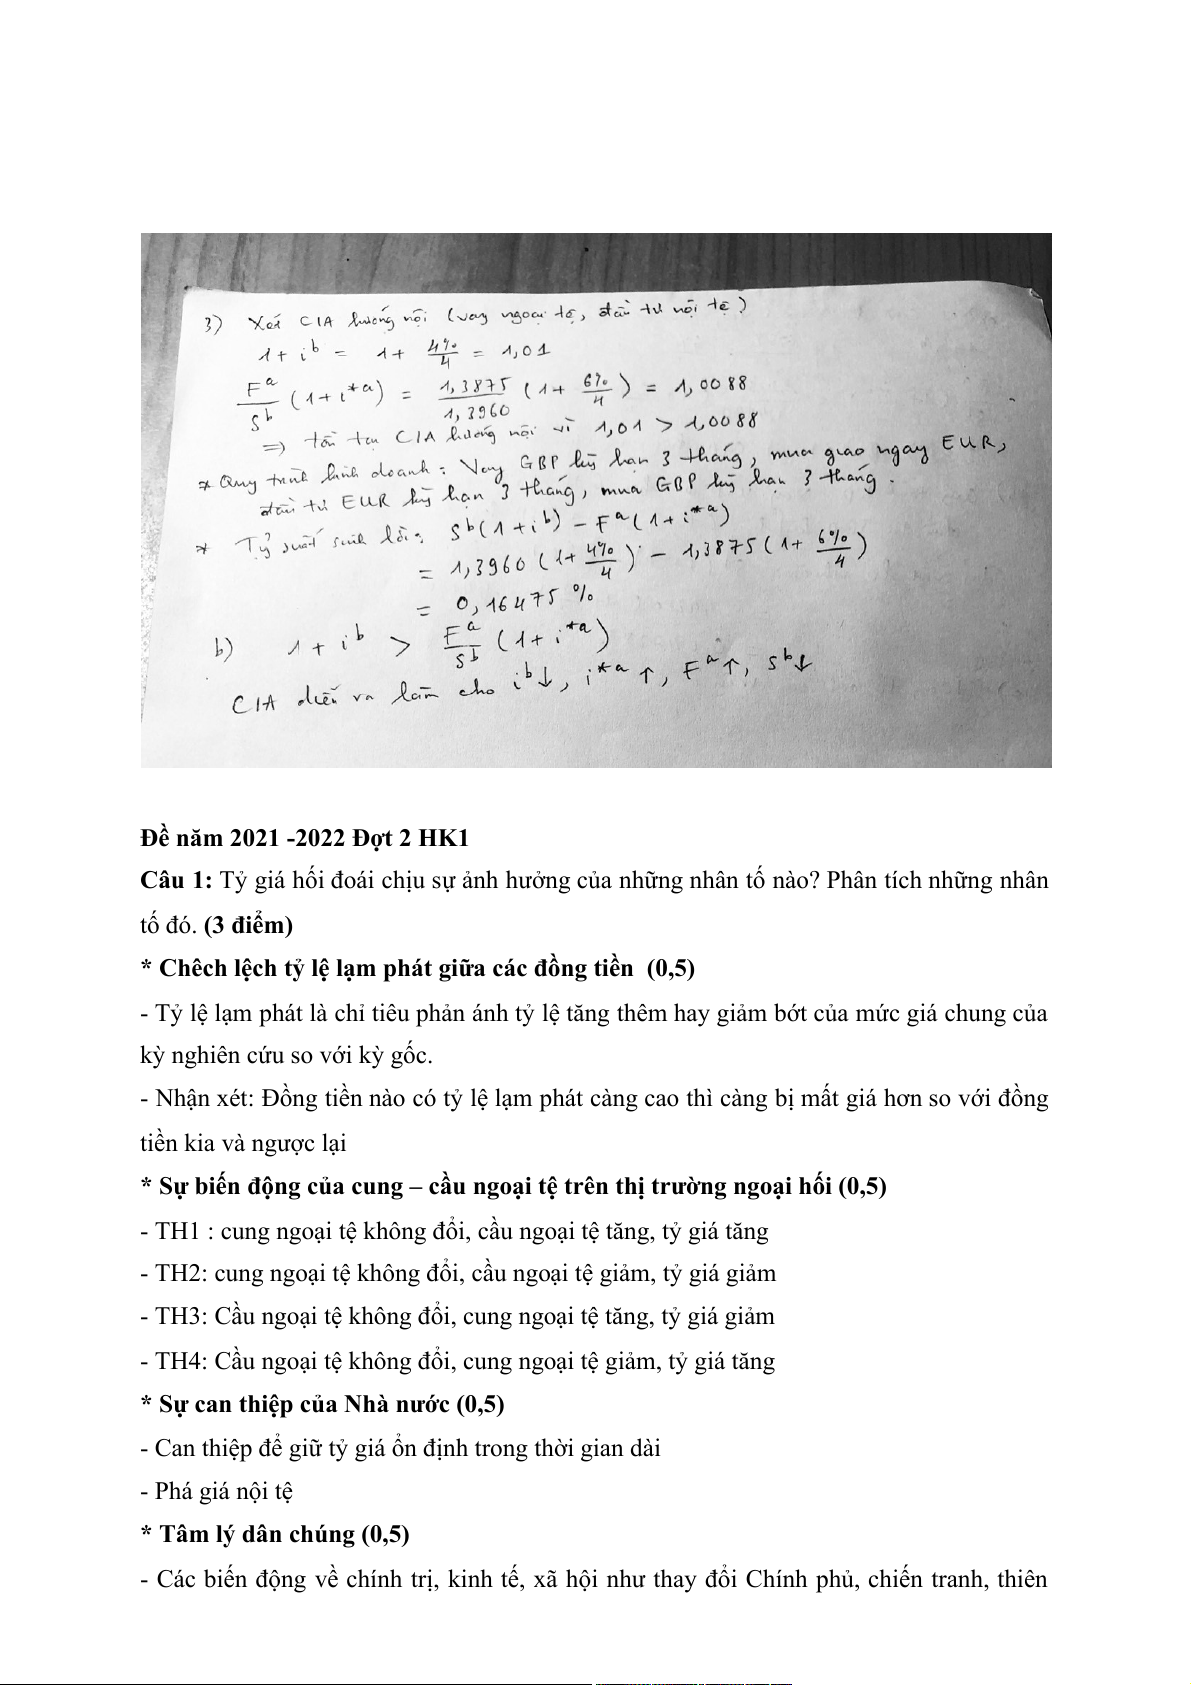 3) Xét CIA hướng nội (vay ngoại tệ, đầu tư nội tệ)
1 + i^b = 1 + 4%/4 = 1,01
F^a/S^b (1 + i*^a) = 1,3875/1,3960 (1 + 6%/4) = 1,0088
=> tồn tại CIA hướng nội vì 1,01 > 1,0088
* Quy trình kinh doanh: Vay GBP kỳ hạn 3 tháng, mua giao ngay EUR,
đầu tư EUR kỳ hạn 3 tháng, mua GBP kỳ hạn 3 tháng.
* Tỷ suất sinh lời: S^b(1 + i^b) - F^a(1 + i*^a)
= 1,3960 (1 + 4%/4) - 1,3875 (1 + 6%/4)
= 0,16475 %
b) 1 + i^b > F^a/S^b (1 + i*^a)
CIA diễn ra làm cho i^b↓, i*^a ↑, F^a↑, S^b↓
Đề năm 2021 -2022 Đợt 2 HK1
Câu 1: Tỷ giá hối đoái chịu sự ảnh hưởng của những nhân tố nào? Phân tích những nhân
tố đó. (3 điểm)
* Chêch lệch tỷ lệ lạm phát giữa các đồng tiền (0,5)
- Tỷ lệ lạm phát là chỉ tiêu phản ánh tỷ lệ tăng thêm hay giảm bớt của mức giá chung của
kỳ nghiên cứu so với kỳ gốc.
- Nhận xét: Đồng tiền nào có tỷ lệ lạm phát càng cao thì càng bị mất giá hơn so với đồng
tiền kia và ngược lại
* Sự biến động của cung – cầu ngoại tệ trên thị trường ngoại hối (0,5)
- TH1 : cung ngoại tệ không đổi, cầu ngoại tệ tăng, tỷ giá tăng
- TH2: cung ngoại tệ không đổi, cầu ngoại tệ giảm, tỷ giá giảm
- TH3: Cầu ngoại tệ không đổi, cung ngoại tệ tăng, tỷ giá giảm
- TH4: Cầu ngoại tệ không đổi, cung ngoại tệ giảm, tỷ giá tăng
* Sự can thiệp của Nhà nước (0,5)
- Can thiệp để giữ tỷ giá ổn định trong thời gian dài
- Phá giá nội tệ
* Tâm lý dân chúng (0,5)
- Các biến động về chính trị, kinh tế, xã hội như thay đổi Chính phủ, chiến tranh, thiên